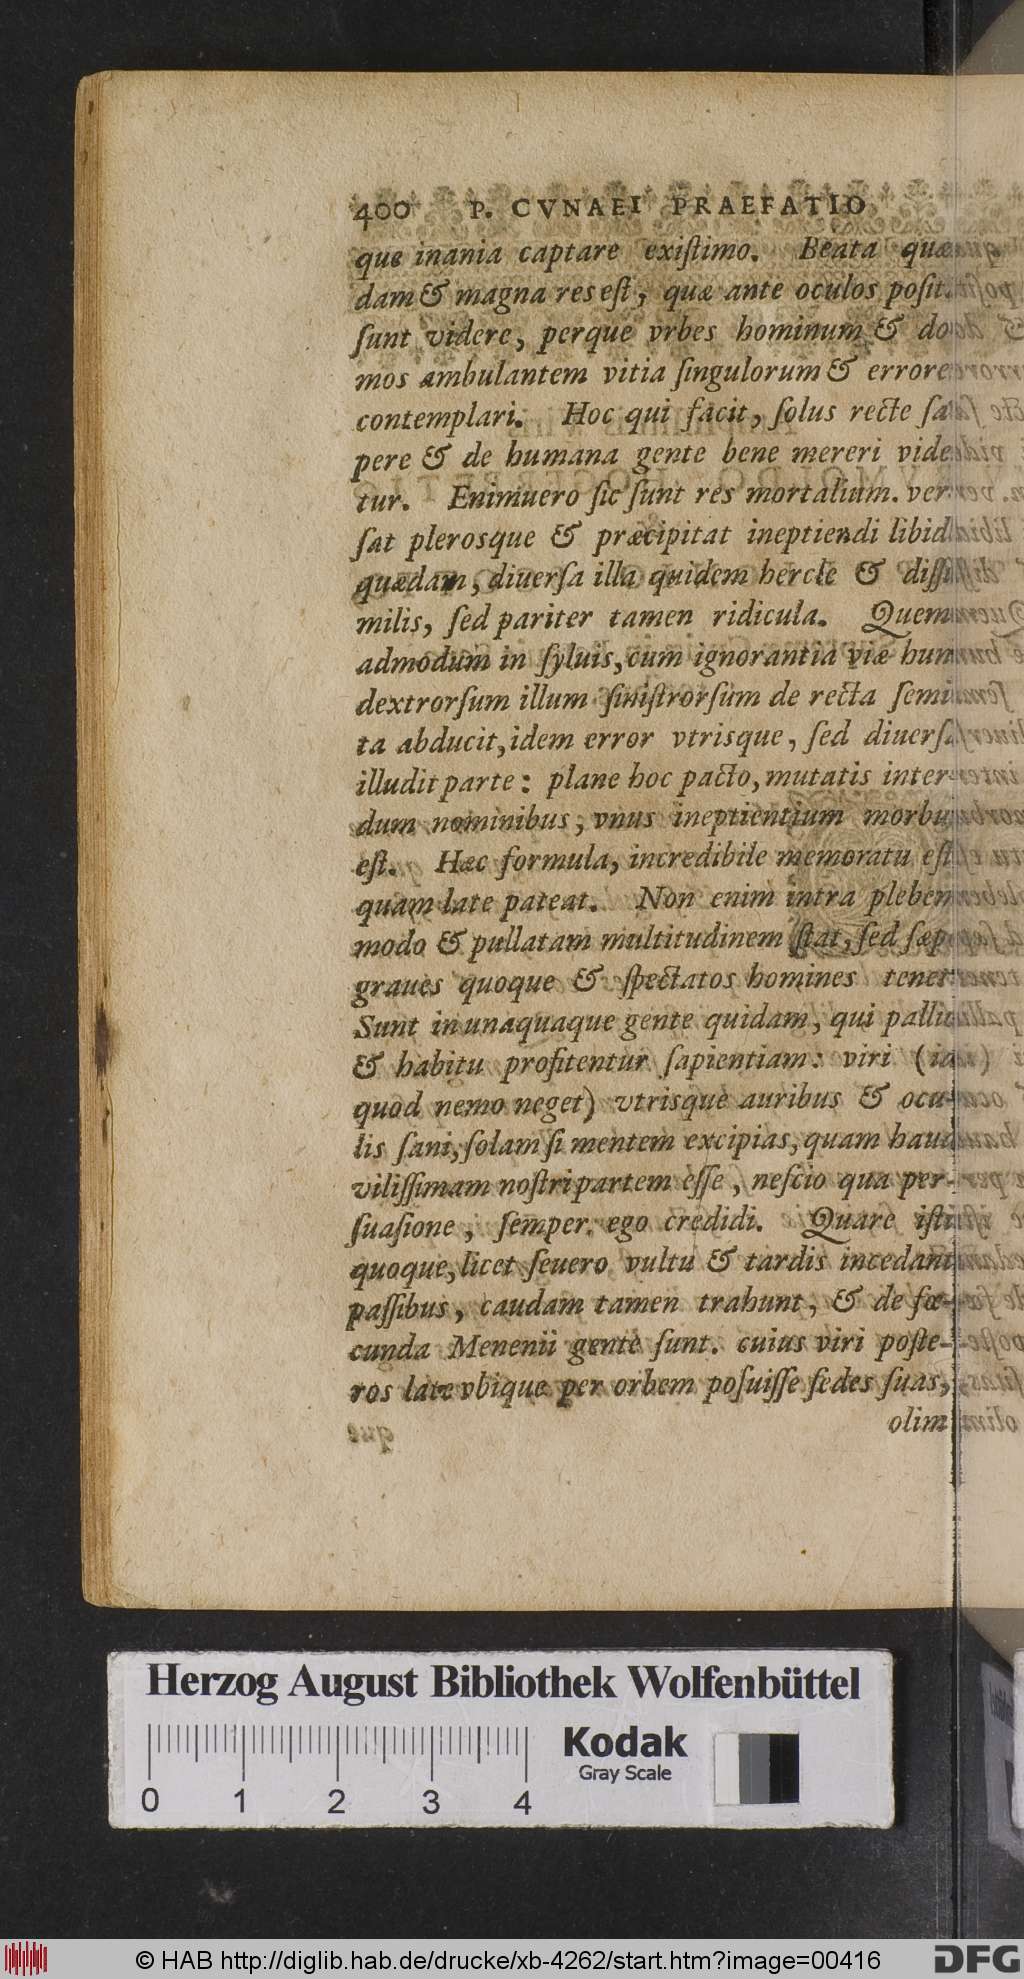 400 P. CVNAEI PRAEFATIO
que inania captare exiſtimo. Beata quæ
dam & magna res eſt, quæ ante oculos poſit.
ſunt videre, perque vrbes hominum & do
mos ambulantem vitia ſingulorum & errore
contemplari. Hoc qui facit, ſolus recte ſa
pere & de humana gente bene mereri vide
tur. Enimuero ſic ſunt res mortalium. ver
ſat plerosque & præcipitat ineptiendi libid
quædam, diuerſa illa quidem hercle & diſſi
milis, ſed pariter tamen ridicula. Quem
admodum in ſyluis, cum ignorantia viæ hun
dextrorſum illum ſiniſtrorſum de recta ſemi
ta abducit, idem error vtrisque, ſed diuerſa
illudit parte: plane hoc pacto, mutatis inter-
dum nominibus, vnus ineptientium morbu
eſt. Hæc formula, incredibile memoratu eſt
quam late pateat. Non enim intra plebem
modo & pullatam multitudinem ſtat, ſed ſæp
graues quoque & ſpectatos homines tenet
Sunt in unaquaque gente quidam, qui pallio
& habitu profitentur ſapientiam: viri (ia
quod nemo neget) vtrisque auribus & ocu-
lis ſani, ſolam ſi mentem excipias, quam haud
viliſſimam noſtri partem eſſe, neſcio qua per-
ſuaſione, ſemper ego credidi. Quare iſti
quoque, licet ſeuero vultu & tardis incedant
paſſibus, caudam tamen trahunt, & de fœ-
cunda Menenii gente ſunt. cuius viri poſte-
ros late vbique per orbem poſuiſſe ſedes ſuas,
olim
Herzog August Bibliothek Wolfenbüttel
0 1 2 3 4
Kodak
Gray Scale
© HAB http://diglib.hab.de/drucke/xb-4262/start.htm?image=00416
DFG